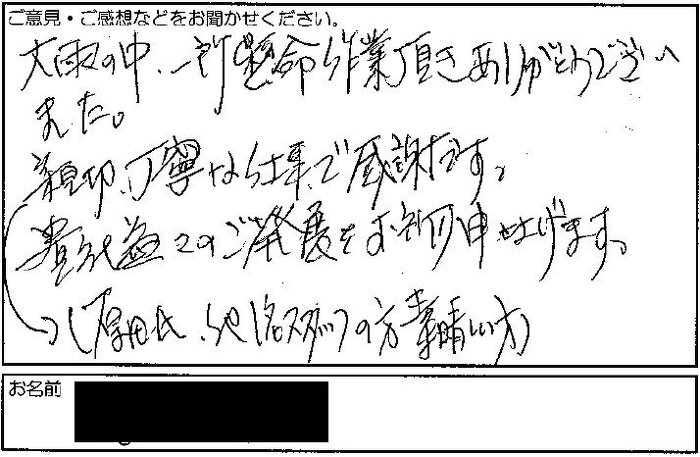 ご意見・ご感想などをお聞かせください。
大雨の中、一所懸命作業頂きありがとうござい
ました。
親切、丁寧な仕事で感謝です。
貴社益々のご発展をお祈り申し上げます。
の方素晴しい方)
お名前